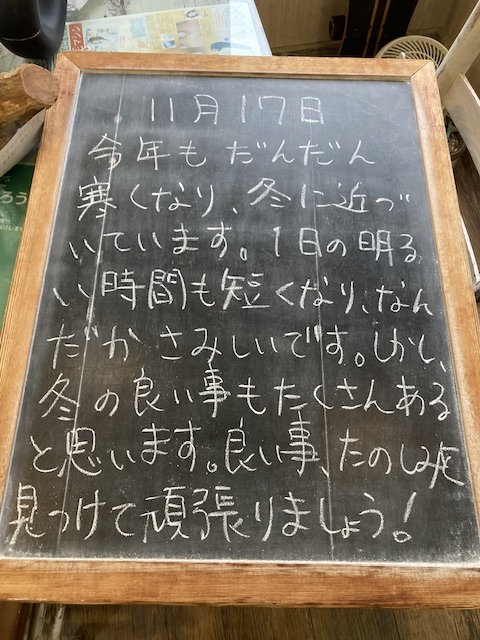 11月17日
今年もだんだん
寒くなり、冬に近づ
いています。1日の明る
い時間も短くなり、なん
だかさみしいです。しかし、
冬の良い事もたくさんある
と思います。良い事、たのしみを
見つけて頑張りましょう!